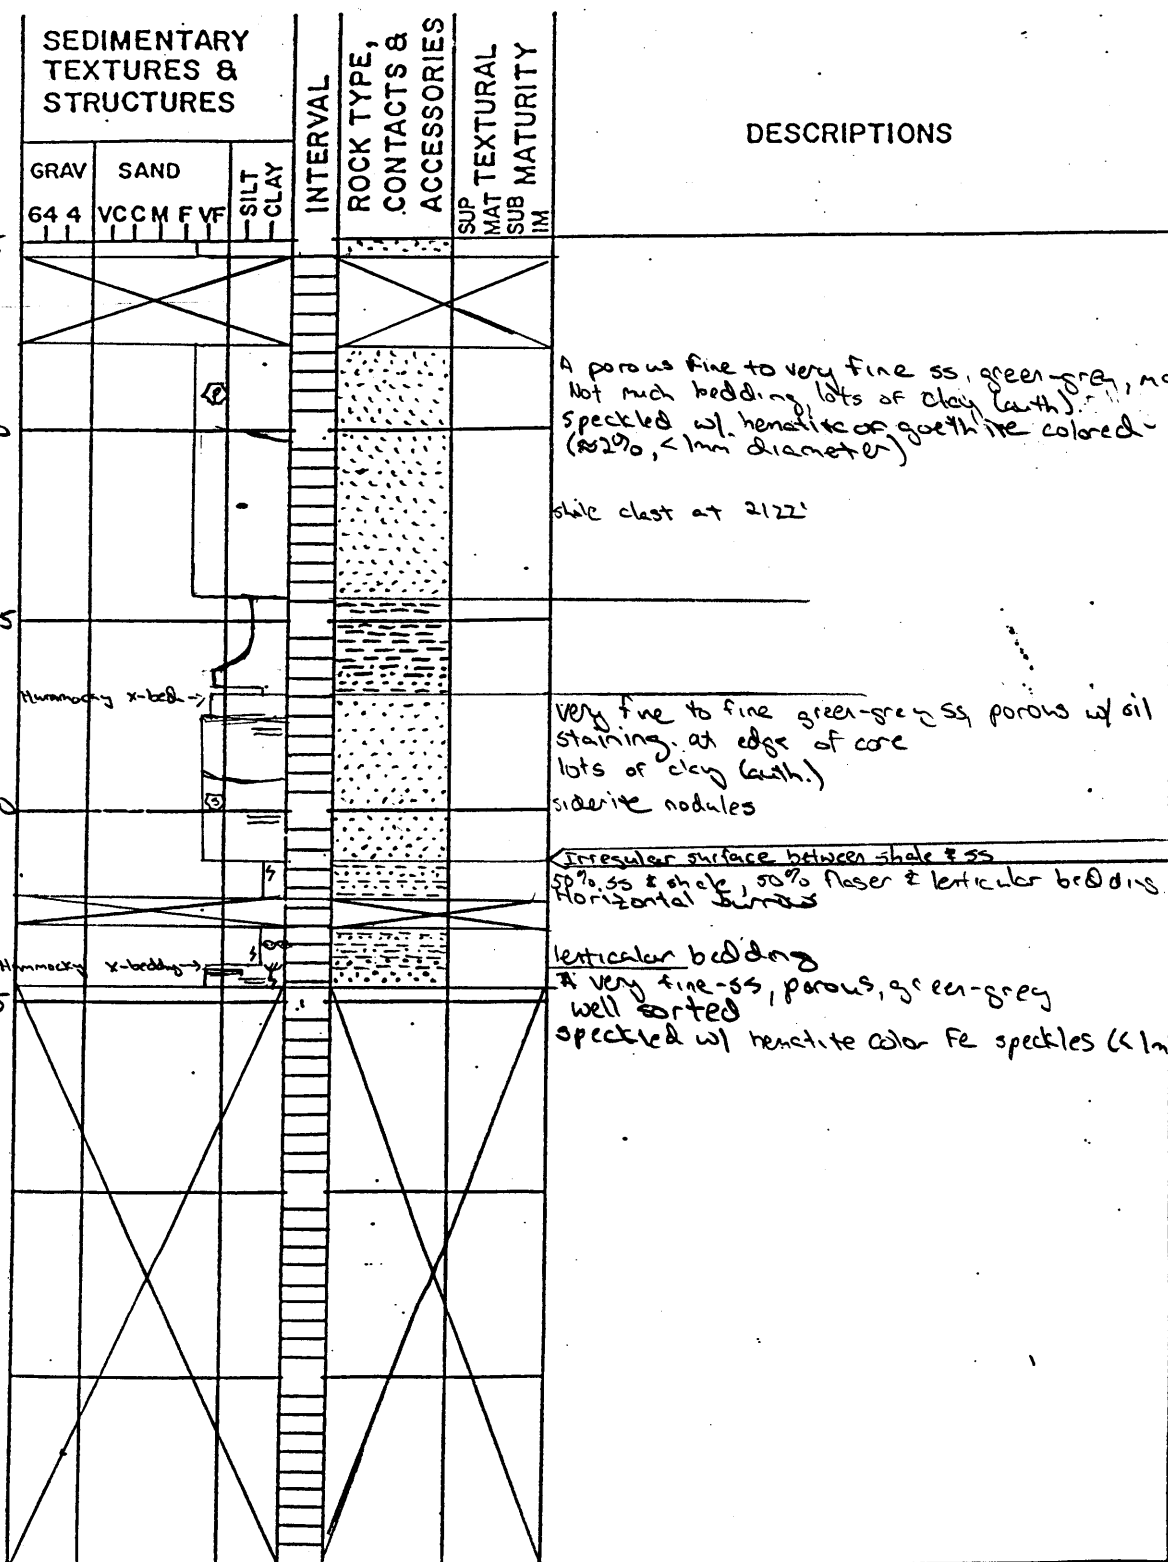 SEDIMENTARY
TEXTURES &
STRUCTURES
GRAV
SAND
SILT
CLAY
64 4
VC C M F VF
INTERVAL
ROCK TYPE,
CONTACTS &
ACCESSORIES
TEXTURAL
MATURITY
SUP
MAT
SUB
IM
DESCRIPTIONS
A porous fine to very fine ss, green-grey,
Not much bedding, lots of clay (auth).
speckled w/. hematite or goethite colored
(≈2%, <1mm diameter)
shale clast at 2122'
Hummocky x-bed
very fine to fine green-grey ss, porous w/ oil
staining. at edge of core
lots of clay (auth.)
siderite nodules
Irregular surface between shale & ss
50% ss & shale, 50% flaser & lenticular bedding
Horizontal burrows
lenticular bedding
Hummocky x-bedding
A very fine-ss, porous, green-grey
well sorted
speckled w/ hematite color Fe speckles (<1m